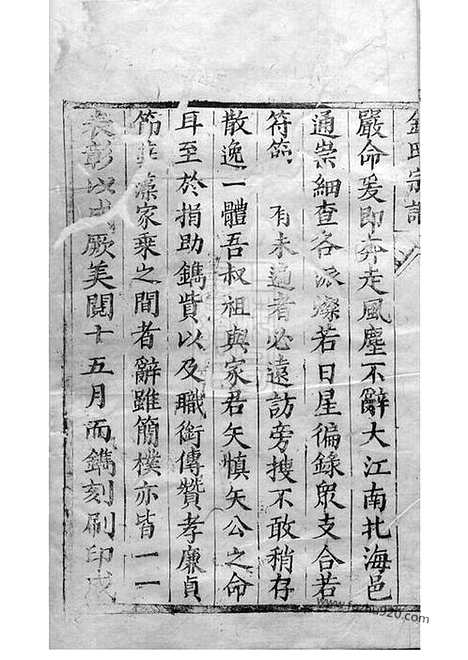 氏宗譜
嚴命爰即奔走風塵不辭大江南北海邑
通崇細查各派燦若日星徧録眾支合若
符節 有未適者必遠訪旁搜不敢稍存
散逸一體吾叔祖與家君矢慎矢公之命
耳至於捐助鐫貲以及職銜傳贊孝廉貞
節 藻家乘之間者辭雖簡樸亦皆一一
表彰以成厥美閱十五月而鐫刻刷印成